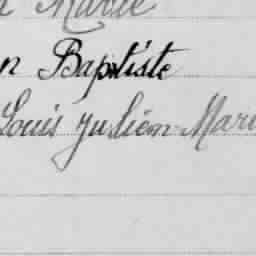 Marie
n Baptiste
Louis Julien Mari